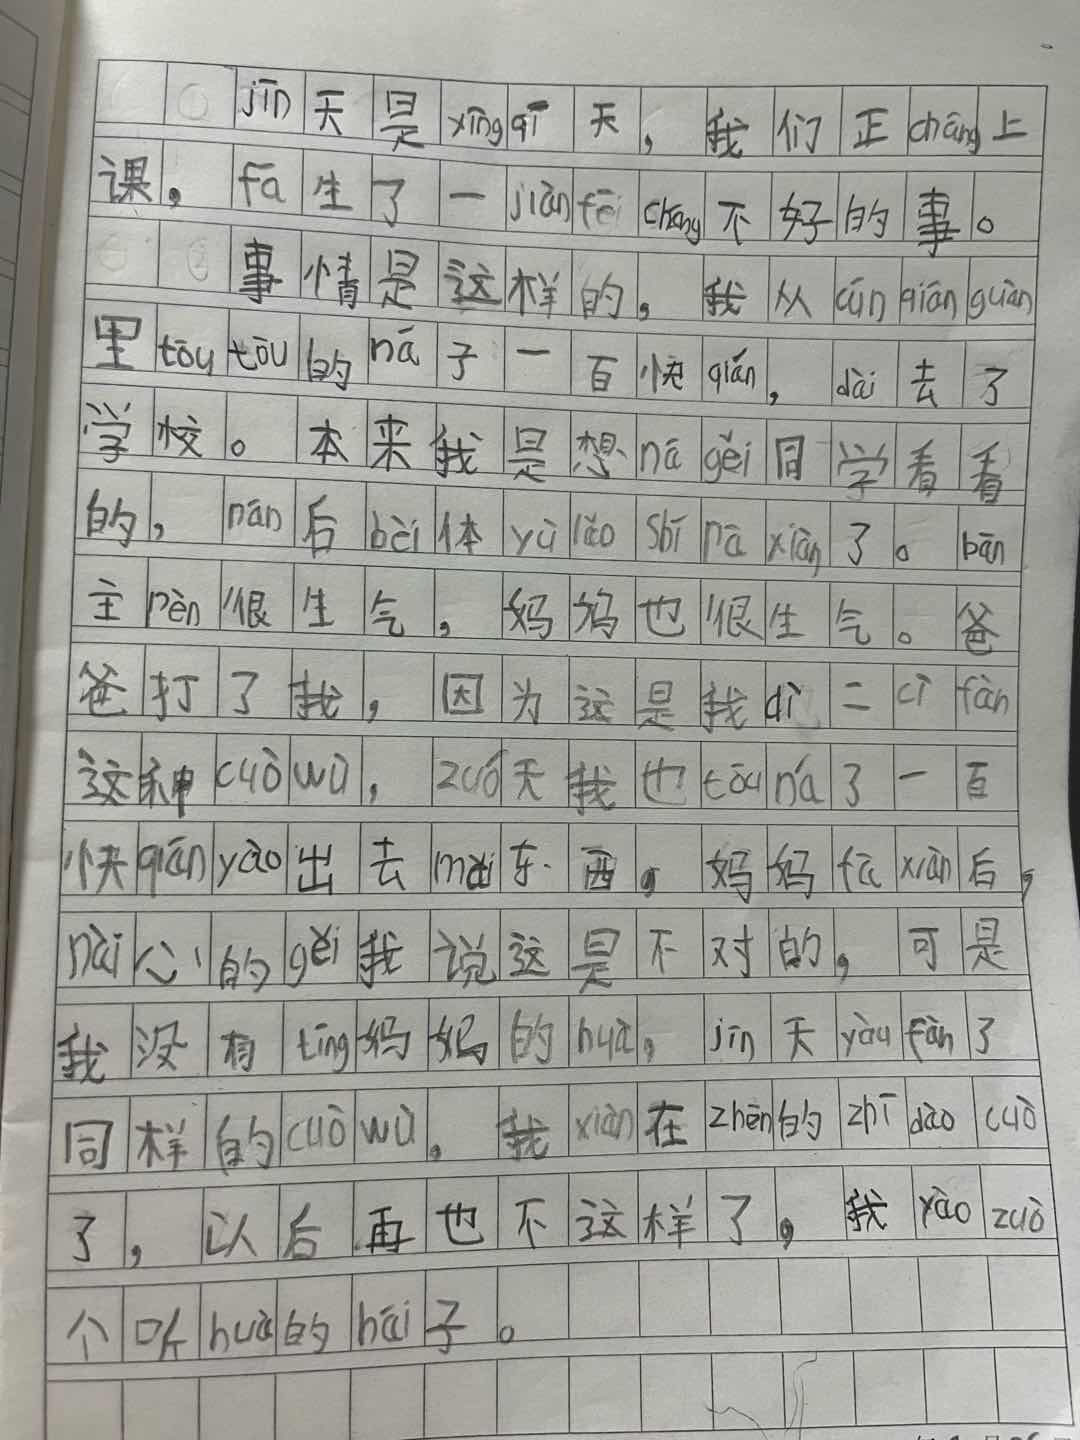 jīn天是xīngqī天，我们正cháng上
课，fā生了一jiànfēicháng不好的事。
事情是这样的，我从cúnqiánguàn
里tōutōu的ná子一百快qián，dài去了
学校。本来我是想nágěi同学看看
的，rán后bèi体yùlǎoshīfāxiàn了。bān
主rèn很生气，妈妈也很生气。爸
爸打了我，因为这是我dì二cìfàn
这种cuòwù，zuó天我也tōuná了一百
快qiányào出去mǎi东西，妈妈fāxiàn后，
nài心的gěi我说这是不对的，可是
我没有tīng妈妈的huà，jīn天yòufàn了
同样的cuòwù。我xiàn在zhēn的zhīdàocuò
了，以后再也不这样了，我yàozuò
个听huà的hái子。